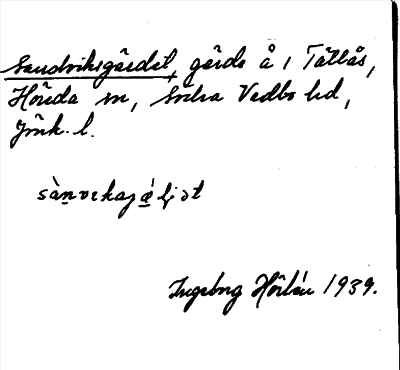 Sandviksgärdet, gärde å 1 Tällås,
Hörida sn, Södra Vedbo hd,
Jönk. l.
Ingeborg Hörlén 1939.